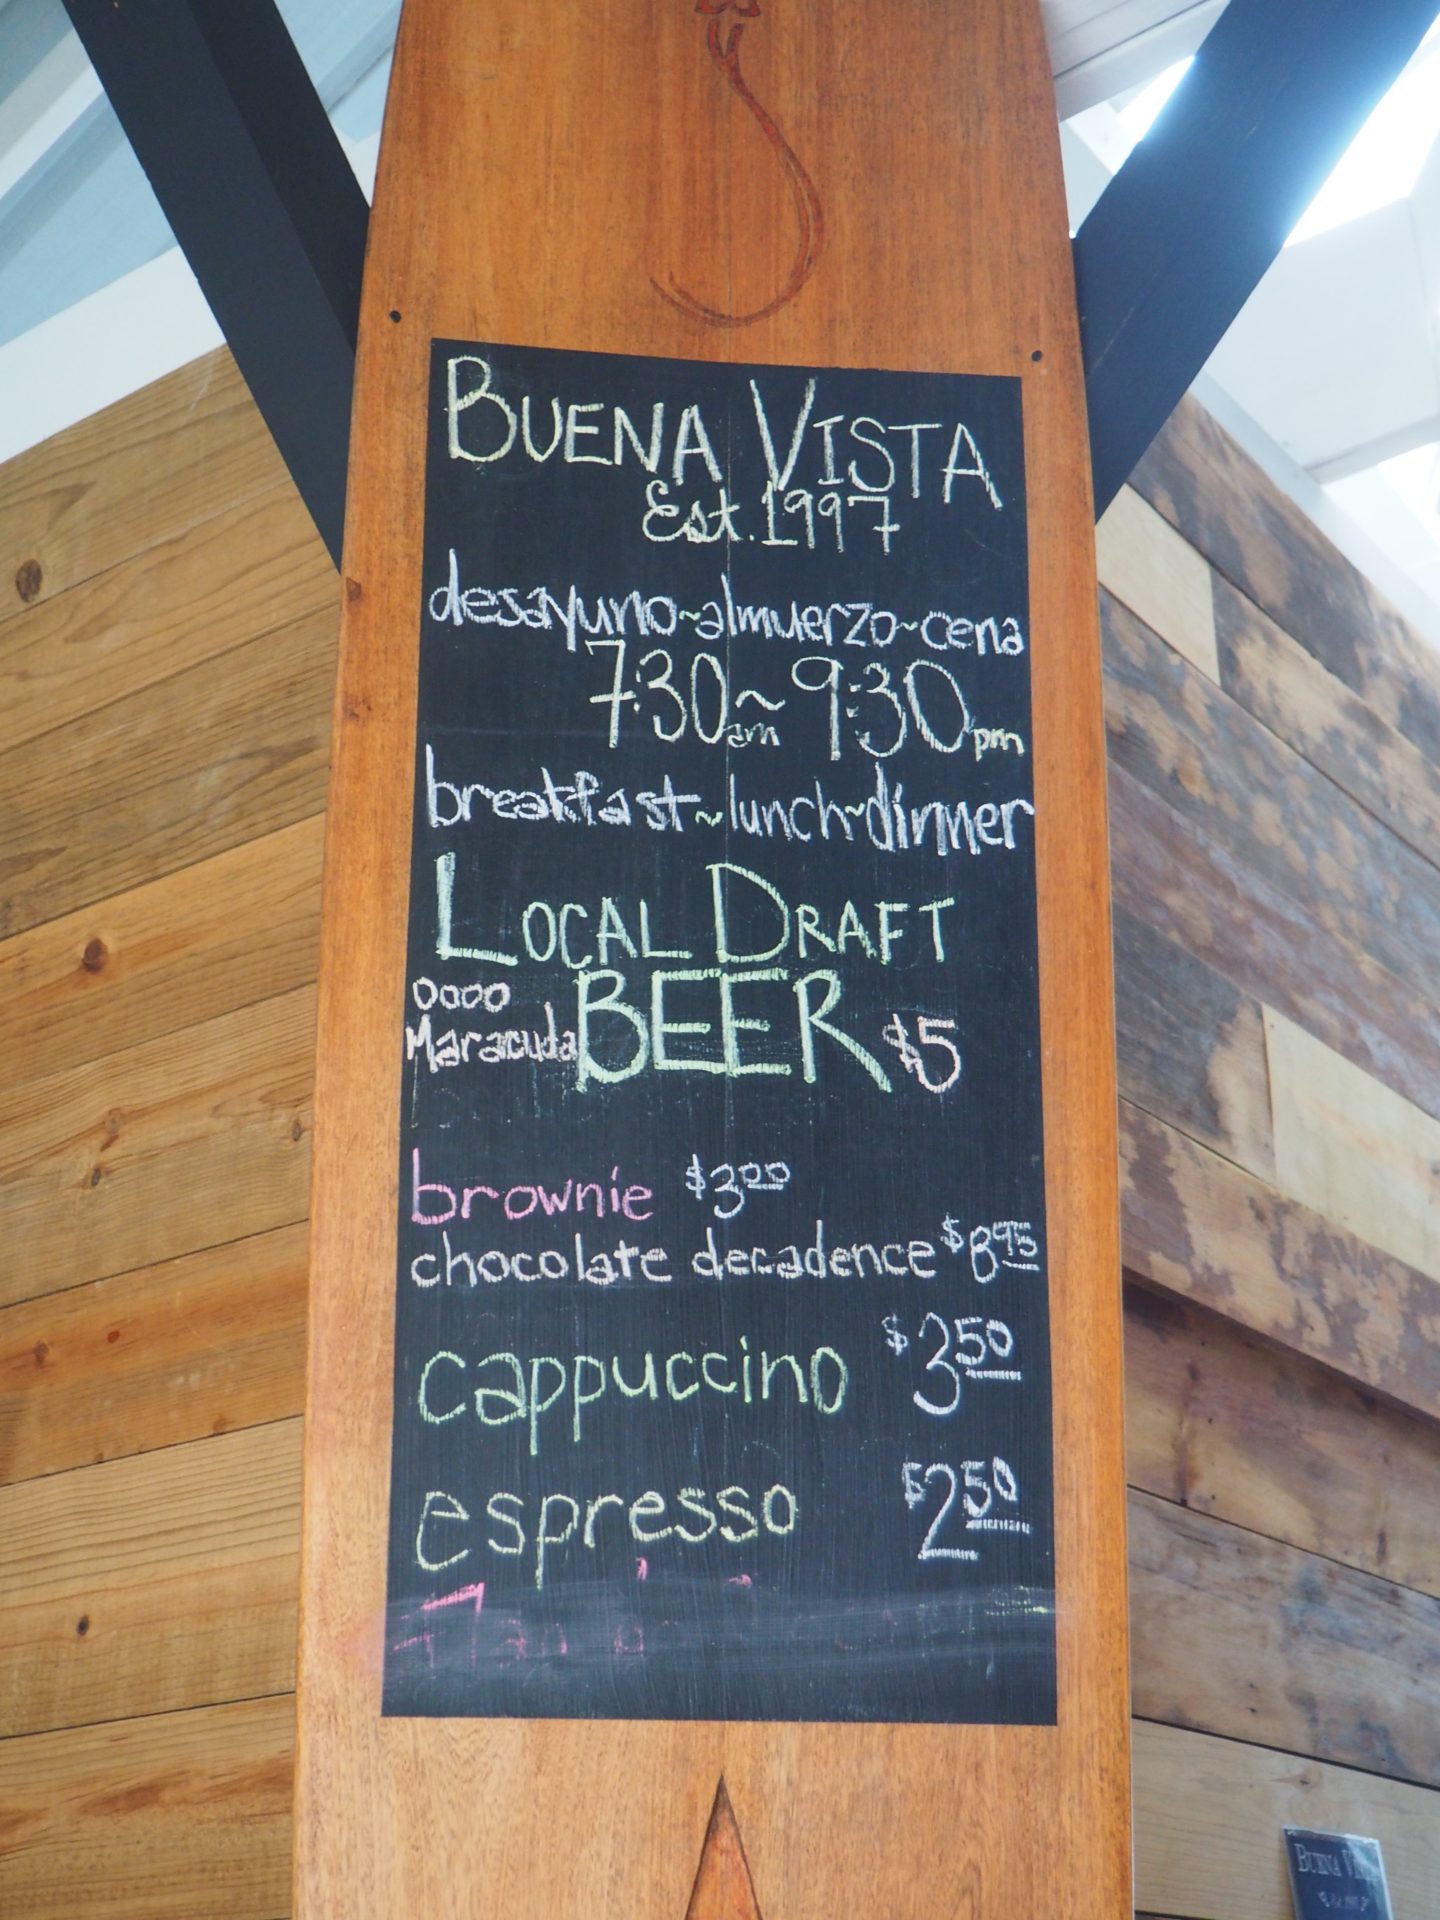 BUENA VISTA
Est. 1997
desayuno~almuerzo~cena
7:30am~9:30pm
breakfast~lunch~dinner
LOCAL DRAFT
Maracuda BEER $5
brownie $3.00
chocolate decadence $8.95
cappuccino $3.50
espresso $2.50
BUENA